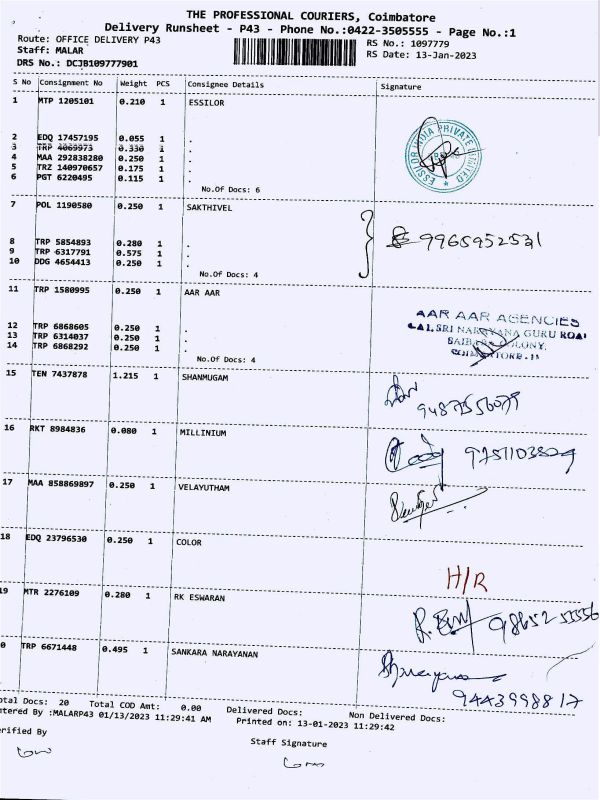 THE PROFESSIONAL COURIERS, Coimbatore
Delivery Runsheet - P43 - Phone No.:0422-3505555 - Page No.:1
Route: OFFICE DELIVERY P43
RS No.: 1097779
Staff: MALAR
RS Date: 13-Jan-2023
DRS No.: DCJB109777901
S No Consignment No Weight PCS Consignee Details Signature
1 MTP 1205101 0.210 1 ESSILOR
ESSILOR INDIA PRIVATE LIMITED
2 EDQ 17457195 0.055 1 .
3 TRP 4069973 0.330 1 .
4 MAA 292838280 0.250 1 .
5 TRZ 140970657 0.175 1 .
6 PGT 6220495 0.115 1 .
No.Of Docs: 6
7 POL 1190580 0.250 1 SAKTHIVEL
9965952531
8 TRP 5854893 0.280 1 .
9 TRP 6317791 0.575 1 .
10 DDG 4654413 0.250 1 .
No.Of Docs: 4
11 TRP 1580995 0.250 1 AAR AAR
AAR AAR AGENCIES
SRI NARAYANA GURU ROAD
SAIBABA COLONY,
COIMBATORE-11
12 TRP 6868605 0.250 1 .
13 TRP 6314037 0.250 1 .
14 TRP 6868292 0.250 1 .
No.Of Docs: 4
15 TEN 7437878 1.215 1 SHANMUGAM
9487556079
16 RKT 8984836 0.080 1 MILLINIUM
9751103829
17 MAA 858869897 0.250 1 VELAYUTHAM
18 EDQ 23796530 0.250 1 COLOR
H/R
19 MTR 2276109 0.280 1 RK ESWARAN
98652 55556
0 TRP 6671448 0.495 1 SANKARA NARAYANAN
9443998817
otal Docs: 20 Total COD Amt: 0.00 Delivered Docs: Non Delivered Docs:
ntered By :MALARP43 01/13/2023 11:29:41 AM Printed on: 13-01-2023 11:29:42
erified By
Staff Signature